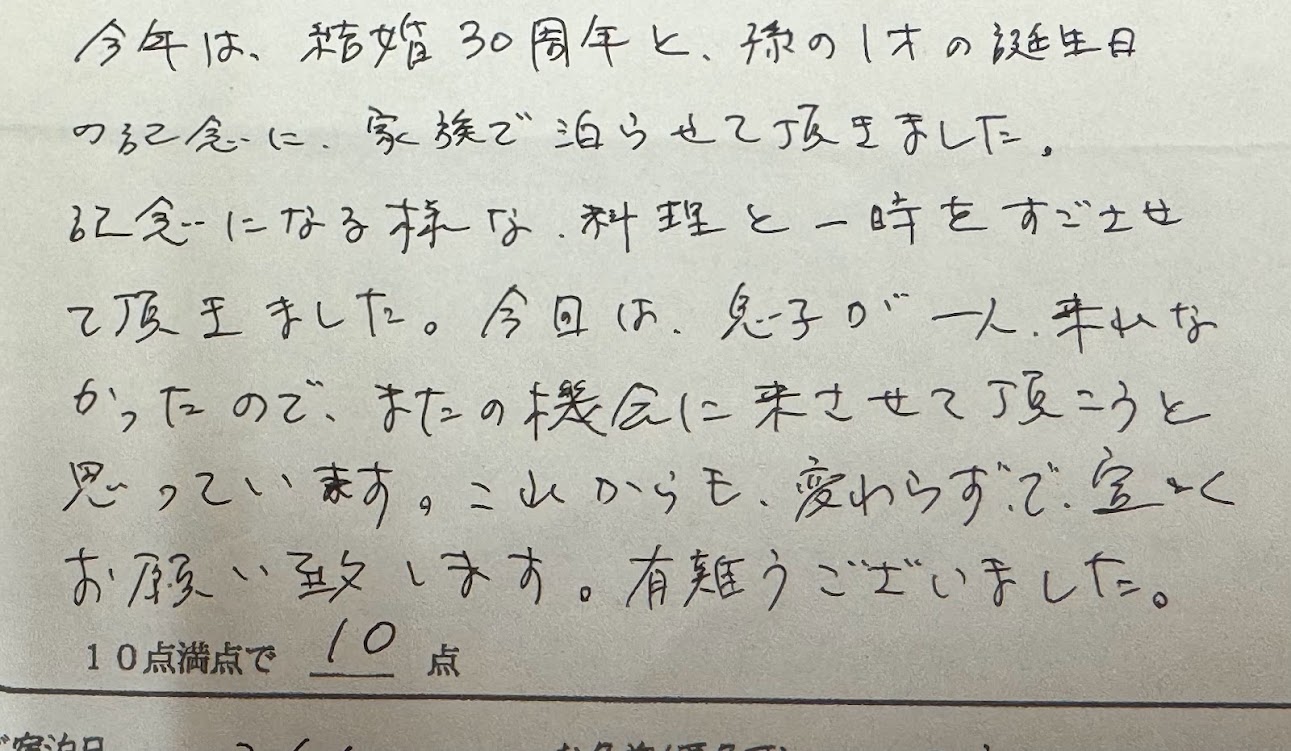 今年は、結婚30周年と、孫の1才の誕生日
の記念に、家族で泊らせて頂きました。
記念になる様な、料理と一時をすごさせ
て頂きました。今回は、息子が一人、来れな
かったので、またの機会に来させて頂こうと
思っています。これからも、変わらずで、宜しく
お願い致します。有難うございました。
10点満点で 10 点
宿泊日